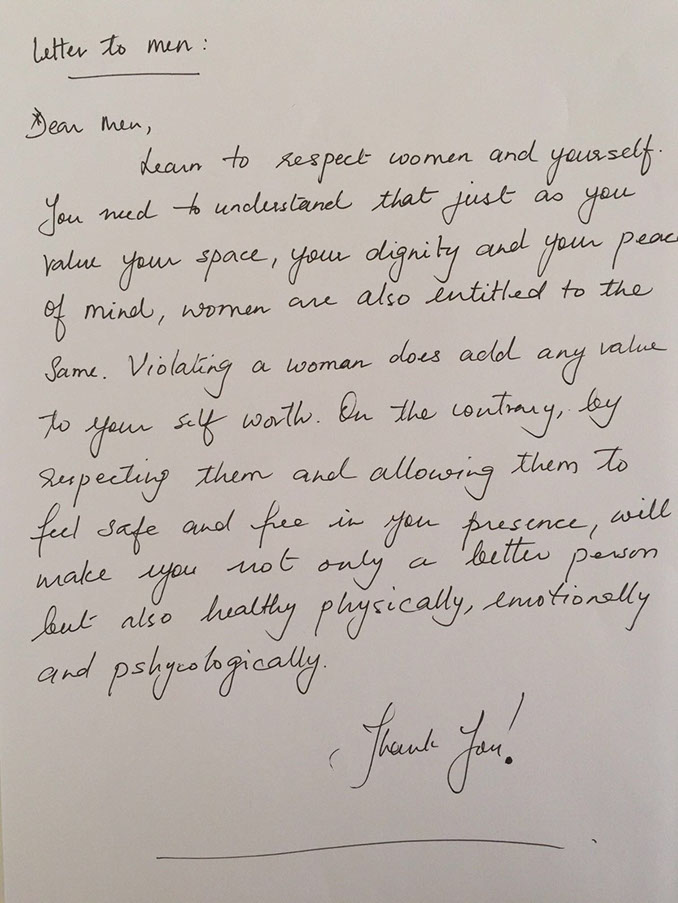 Letter to men :
Dear Men,
Learn to respect women and yourself.
You need to understand that just as you
value your space, your dignity and your peac
of mind, women are also entitled to the
same. Violating a woman does add any value
to your self worth. On the contrary, by
respecting them and allowing them to
feel safe and free in you presence, will
make you not only a better person
but also healthy physically, emotionally
and pshycologically.
Thank You!